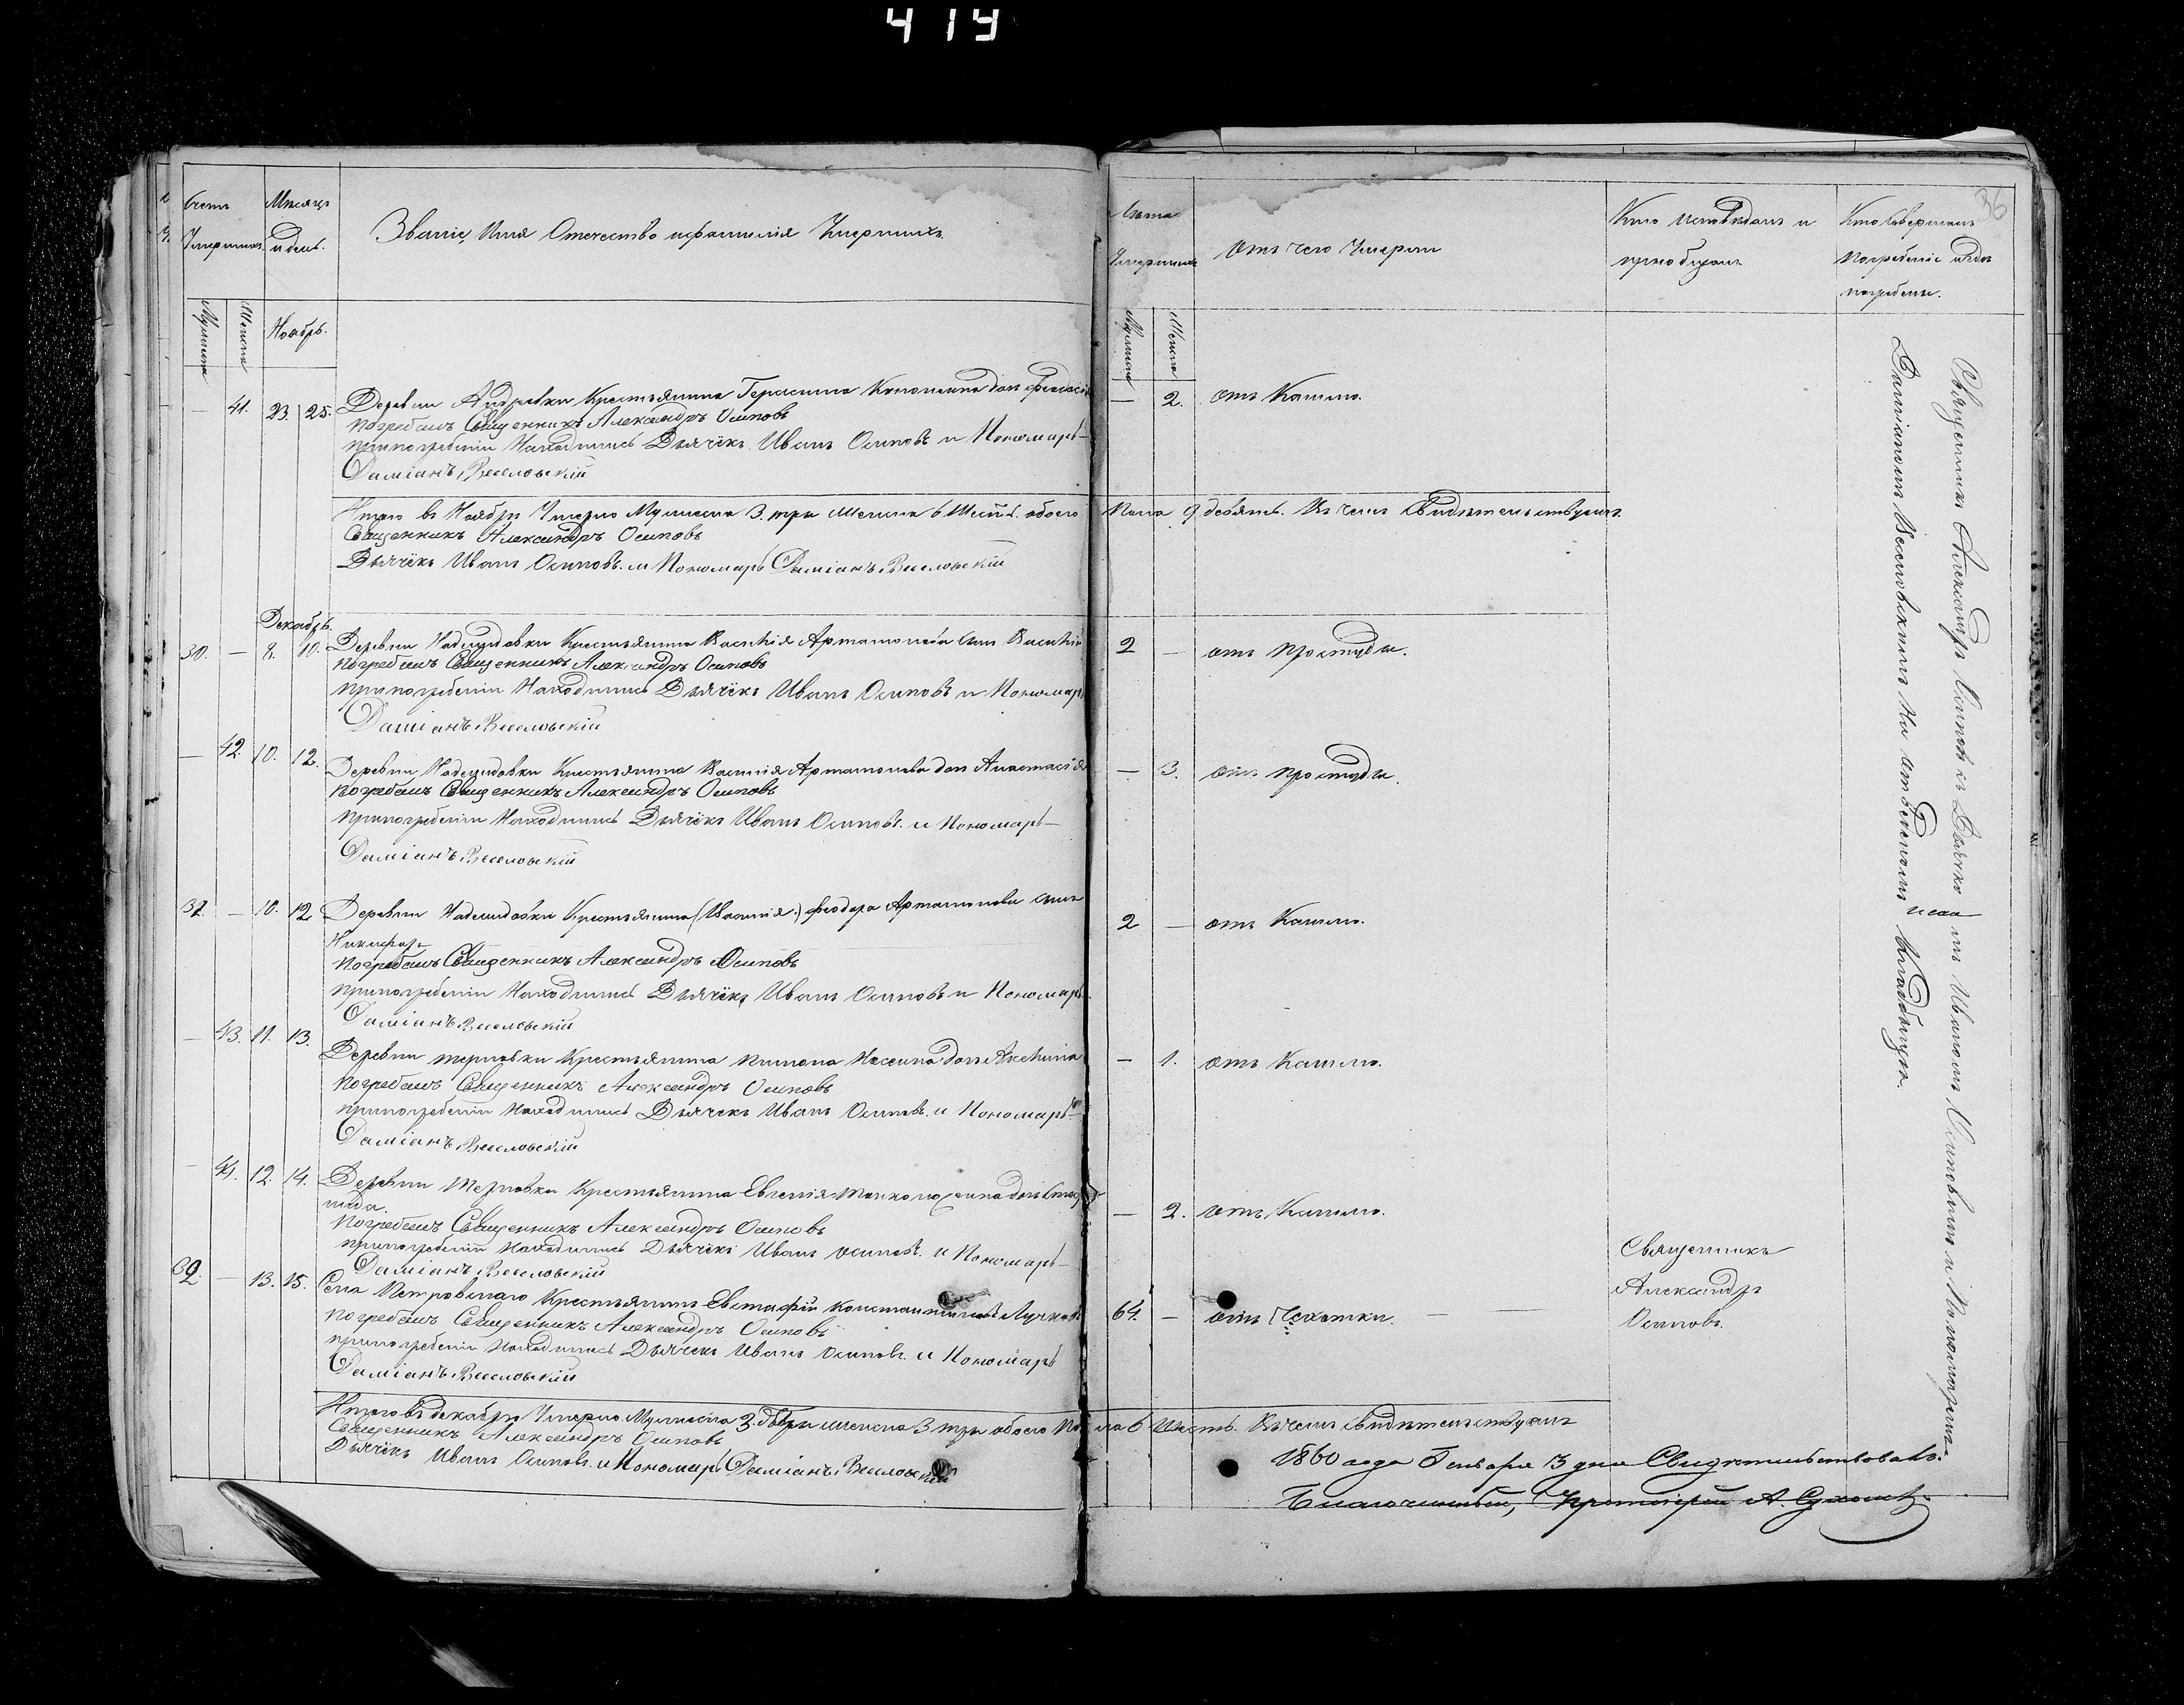 419
36
Счетъ
Умершихъ.
Мѣсяцъ
и день.
Званіе, Имя Отечество и фамилія Умершихъ.
Лѣта
Умершихъ
Отъ чего Умерли
Кто Исповѣдалъ и
пріобщалъ
Кто Совершалъ
Погребеніе и гдѣ
погребены.
Мужеска
Женска
Ноябрь.
Мужеска
Женска
— 41. 23. 25. Деревни Андревки Крестьянина Герасима дочь Феодосія
— 2. отъ Кашлю.
Погребалъ Священникъ Александръ Осиповъ
при погребеніи Находились Дьячёкъ Иванъ Осиповъ и Пономарь
Даміанъ Веселовскій
Итого въ Ноябрѣ Умерло Мужеска 3. три Женска 6 Шесть. обоего Пола 9 девять. Въ чемъ Свидѣтельствуемъ.
Священникъ Александръ Осиповъ
Дьячёкъ Иванъ Осиповъ. и Пономарь Даміанъ Веселовскій
Декабрь.
30. — 8. 10. Деревни Надеждовки Крестьянина Василія Артамонова сынъ Василій
2 — отъ простуды.
Погребалъ Священникъ Александръ Осиповъ
при погребеніи Находились Дьячёкъ Иванъ Осиповъ и Пономарь
Даміанъ Веселовскій
— 42. 10. 12. Деревни Надеждовки Крестьянина Василія Артамонова дочь Анастасія
— 3. отъ простуды.
Погребалъ Священникъ Александръ Осиповъ
при погребеніи Находились Дьячёкъ Иванъ Осиповъ. и Пономарь
Даміанъ Веселовскій
31. — 10. 12. Деревни Надеждовки Крестьянина (Василія.) Феодора Артамонова сынъ
2 — отъ Кашлю.
Никифоръ
Погребалъ Священникъ Александръ Осиповъ
при погребеніи Находились Дьячёкъ Иванъ Осиповъ и Пономарь
Даміанъ Веселовскій
— 43. 11. 13. Деревни Терновки Крестьянина дочь
— 1. отъ Кашлю.
Погребалъ Священникъ Александръ Осиповъ
при погребеніи Находились Дьячекъ Иванъ Осиповъ. и Пономарь
Даміанъ Веселовскій
— 44. 12. 14. Деревни Терновки Крестьянина Евгенія дочь
— 2. отъ Кашлю.
Погребалъ Священникъ Александръ Осиповъ
при погребеніи Находились Дьячёкъ Иванъ Осиповъ. и Пономарь
Даміанъ Веселовскій
32. — 13. 15. Села Петровскаго Крестьянинъ Евстафій Константиновъ
64. — отъ Чехотки.
Священникъ
Александръ
Осиповъ.
Погребалъ Священникъ Александръ Осиповъ
при погребеніи Находились Дьячекъ Иванъ Осиповъ. и Пономарь
Даміанъ Веселовскій
Итого въ декабрѣ Умерло Мужеска 3. три женска 3 три обоего Пола 6 Шесть. Въ чемъ Свидѣтельствуемъ
Священникъ Александръ Осиповъ
Дьячёкъ Иванъ Осиповъ. и Пономарь Даміанъ Веселовскій
Священникъ Александръ Осиповъ съ Дьячкомъ Иваномъ Осиповымъ и Пономаремъ
Даміаномъ Веселовскимъ На отведенномъ Кладбищѣ.
1860 года Генваря 13 дня Свидѣтельствовалъ:
Благочинный, Протоіерей А.